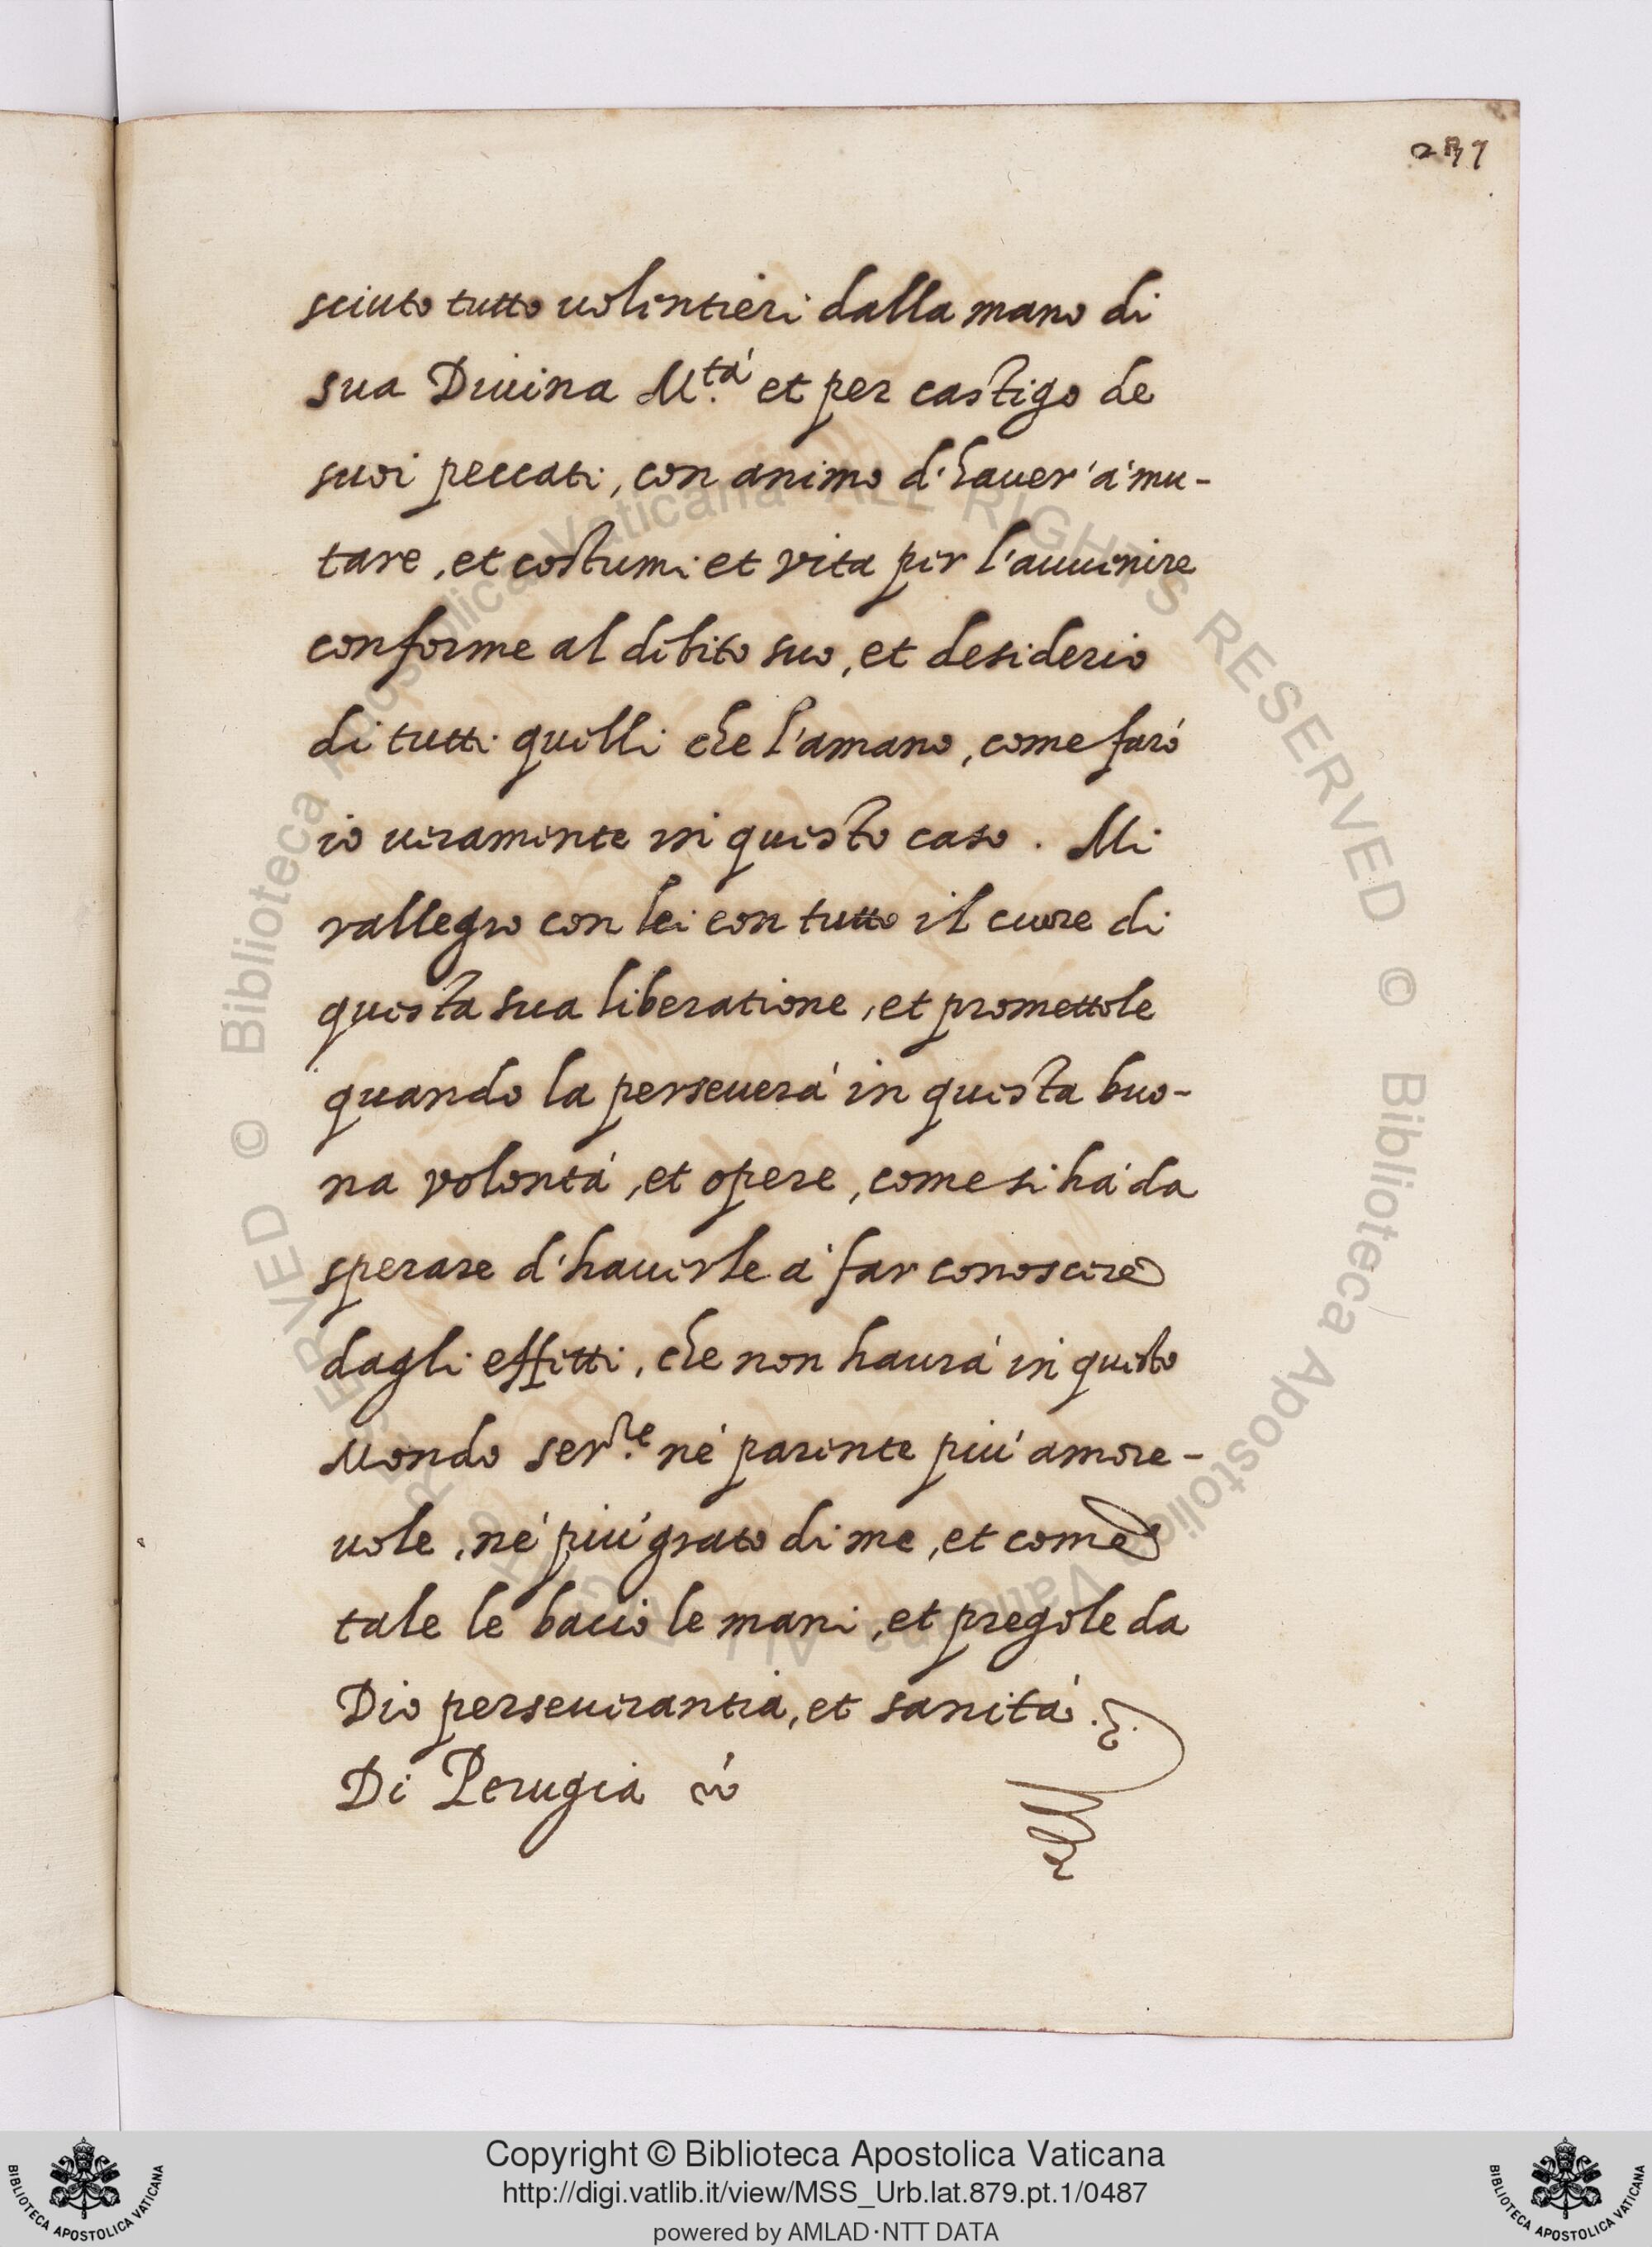 sciuto tutto uolentieri dalla mano di
sua Diuina M.tà et per castigo de
suoi peccati, con animo d'hauer' à mu-
tare, et costumi et vita per l'auuenire
conforme al debito suo, et desiderio
di tutti quelli che l'amano, come farò
io ueramente in questo caso. Mi
rallegro con lei con tutto il cuore di
questa sua liberatione, et promettole
quando la perseuerà in questa buo-
na volontà, et opere, come si hà da
sperare d'hauerle à far conoscere
dagli effetti, che non haurà in questo
Mondo ser.re nè parente più amore-
uole, nè più grato di me, et come
tale le bacio le mani, et pregole da
Dio perseuerantia, et sanità.
Di Perugia
© Biblioteca Apostolica Vaticana ALL RIGHTS RESERVED © Biblioteca Apostolica Vaticana ALL RIGHTS RESERVED
Copyright © Biblioteca Apostolica Vaticana
http://digi.vatlib.it/view/MSS_Urb.lat.879.pt.1/0487
powered by AMLAD·NTT DATA
BIBLIOTECA APOSTOLICA VATICANA
BIBLIOTECA APOSTOLICA VATICANA